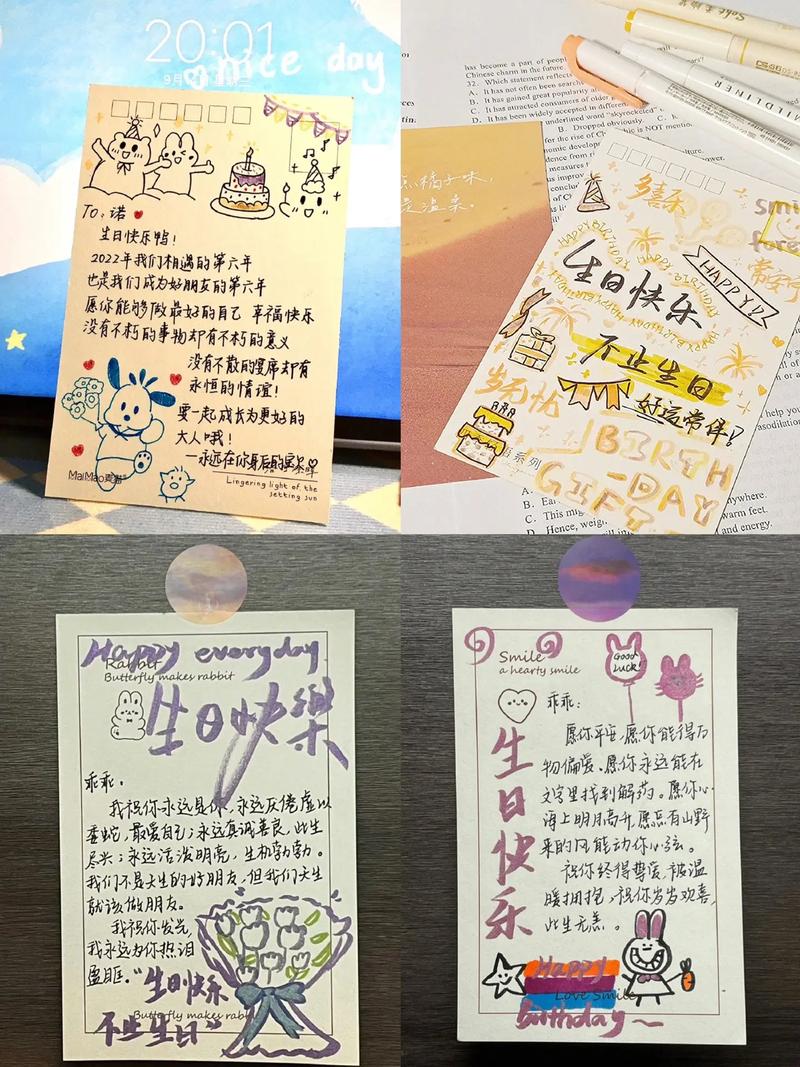 20:01
nice day
TO:诺
生日快乐鸭!
2022年我们相遇的第六年
也是我们成为好朋友的第六年
愿你能够做最好的自己 幸福快乐
没有不朽的事物却有不朽的意义
没有不散的宴席却有
永恒的情谊!
要一起成长为更好的
大人哦!
一永远在你身后的
MaiMao
Lingering light of the
setting sun
has become a part of
Chinese charm in the future.
32. Which statement reflects
A. It has not often been
B. It has gained great popularity
C. It has attracted consumers of older
D. It has been widely accepted in
underlined word "skyrocketed"
B. Dropped obviously.
is NOT
Soft
MILDLINER
是温柔。
多喜乐
smile
forever
常安宁
HAPPY BIRTHDAY
HAPPY BIRTHDAY
HAPPY!!
生日快乐
不止生日
岁无忧
好运常伴!
BIRTH
-DAY
GIFT
系列
B. Ear
C. This mig
D. Hence, weig
anywhere.
and energy.
Happy everyday
Rabbit
Butterfly makes rabbit
生日快樂
乖乖:
我祝你永远是你,永远厌倦虚以
委蛇,最爱自己;永远真诚善良,此生
尽兴;永远活泼明亮,生机勃勃。
我们不是天生的好朋友,但我们天生
就该做朋友。
我祝你发光,
我永远为你热泪
盈眶。
"生日快乐
不止生日"
Butterfly makes rabbit
Smile
a hearty smile
Good
Luck!
乖乖:
生日快乐
愿你平安,愿你能得万
物偏爱。愿你永远能在
文字里找到解药。愿你心
海上明月高升,愿总有山野
来的风能动你心弦。
祝你终得挚爱,被温
暖拥抱,祝你岁岁欢喜,
此生无恙。
Happy
Love Smile
Birthday~